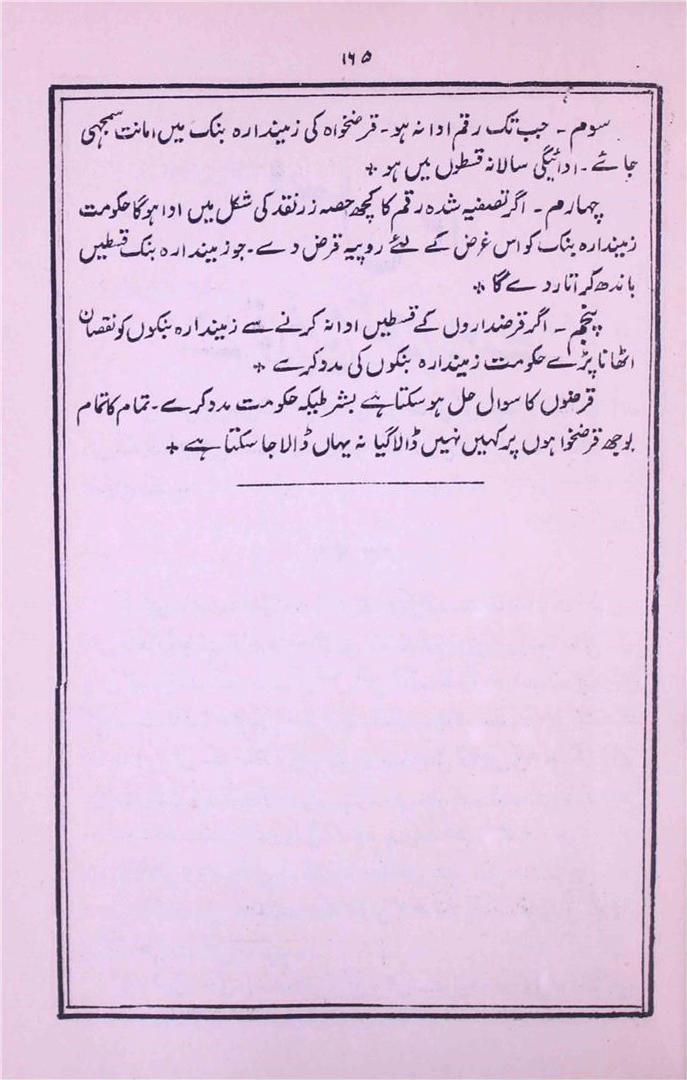 ۱۶۵
سوم ۔ جب تک رقم ادا نہ ہو۔ قرضخواہ کی زمیندارہ بنک میں امانت سمجھی
جائے ۔ ادائیگی سالانہ قسطوں میں ہو ٭
چہارم ۔ اگر تصفیہ شدہ رقم کا کچھ حصہ زر نقد کی شکل میں ادا ہوگا حکومت
زمیندارہ بنک کو اس غرض کے لئے روپیہ قرض دے ۔ جو زمیندارہ بنک قسطیں
باندھ کر اتار دے گا ٭
پنجم ۔ اگر قرضداروں کے قسطیں ادا نہ کرنے سے زمیندارہ بنکوں کو نقصان
اٹھانا پڑے حکومت زمیندارہ بنکوں کی مدد کرے ٭
قرضوں کا سوال حل ہو سکتا ہے بشرطیکہ حکومت مدد کرے ۔ تمام کا تمام
بوجھ قرضخواہوں پر کہیں نہیں ڈالا گیا نہ یہاں ڈالا جا سکتا ہے ٭